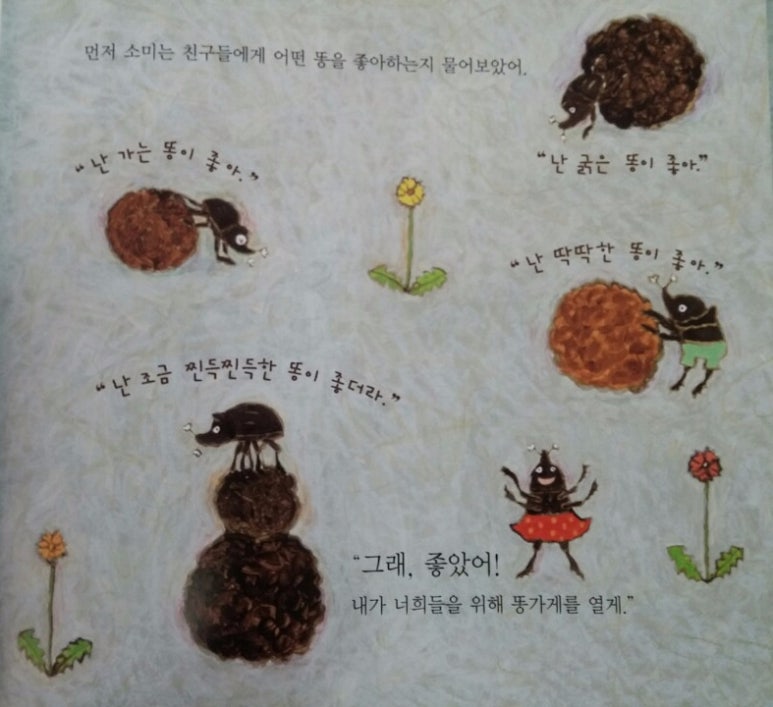 먼저 소미는 친구들에게 어떤 똥을 좋아하는지 물어보았어.
“난 가는 똥이 좋아.”
“난 굵은 똥이 좋아.”
“난 딱딱한 똥이 좋아.”
“난 조금 찐득찐득한 똥이 좋더라.”
“그래, 좋았어!
내가 너희들을 위해 똥가게를 열게.”